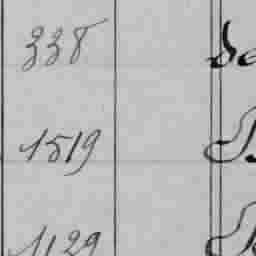 338 de
1519
1129